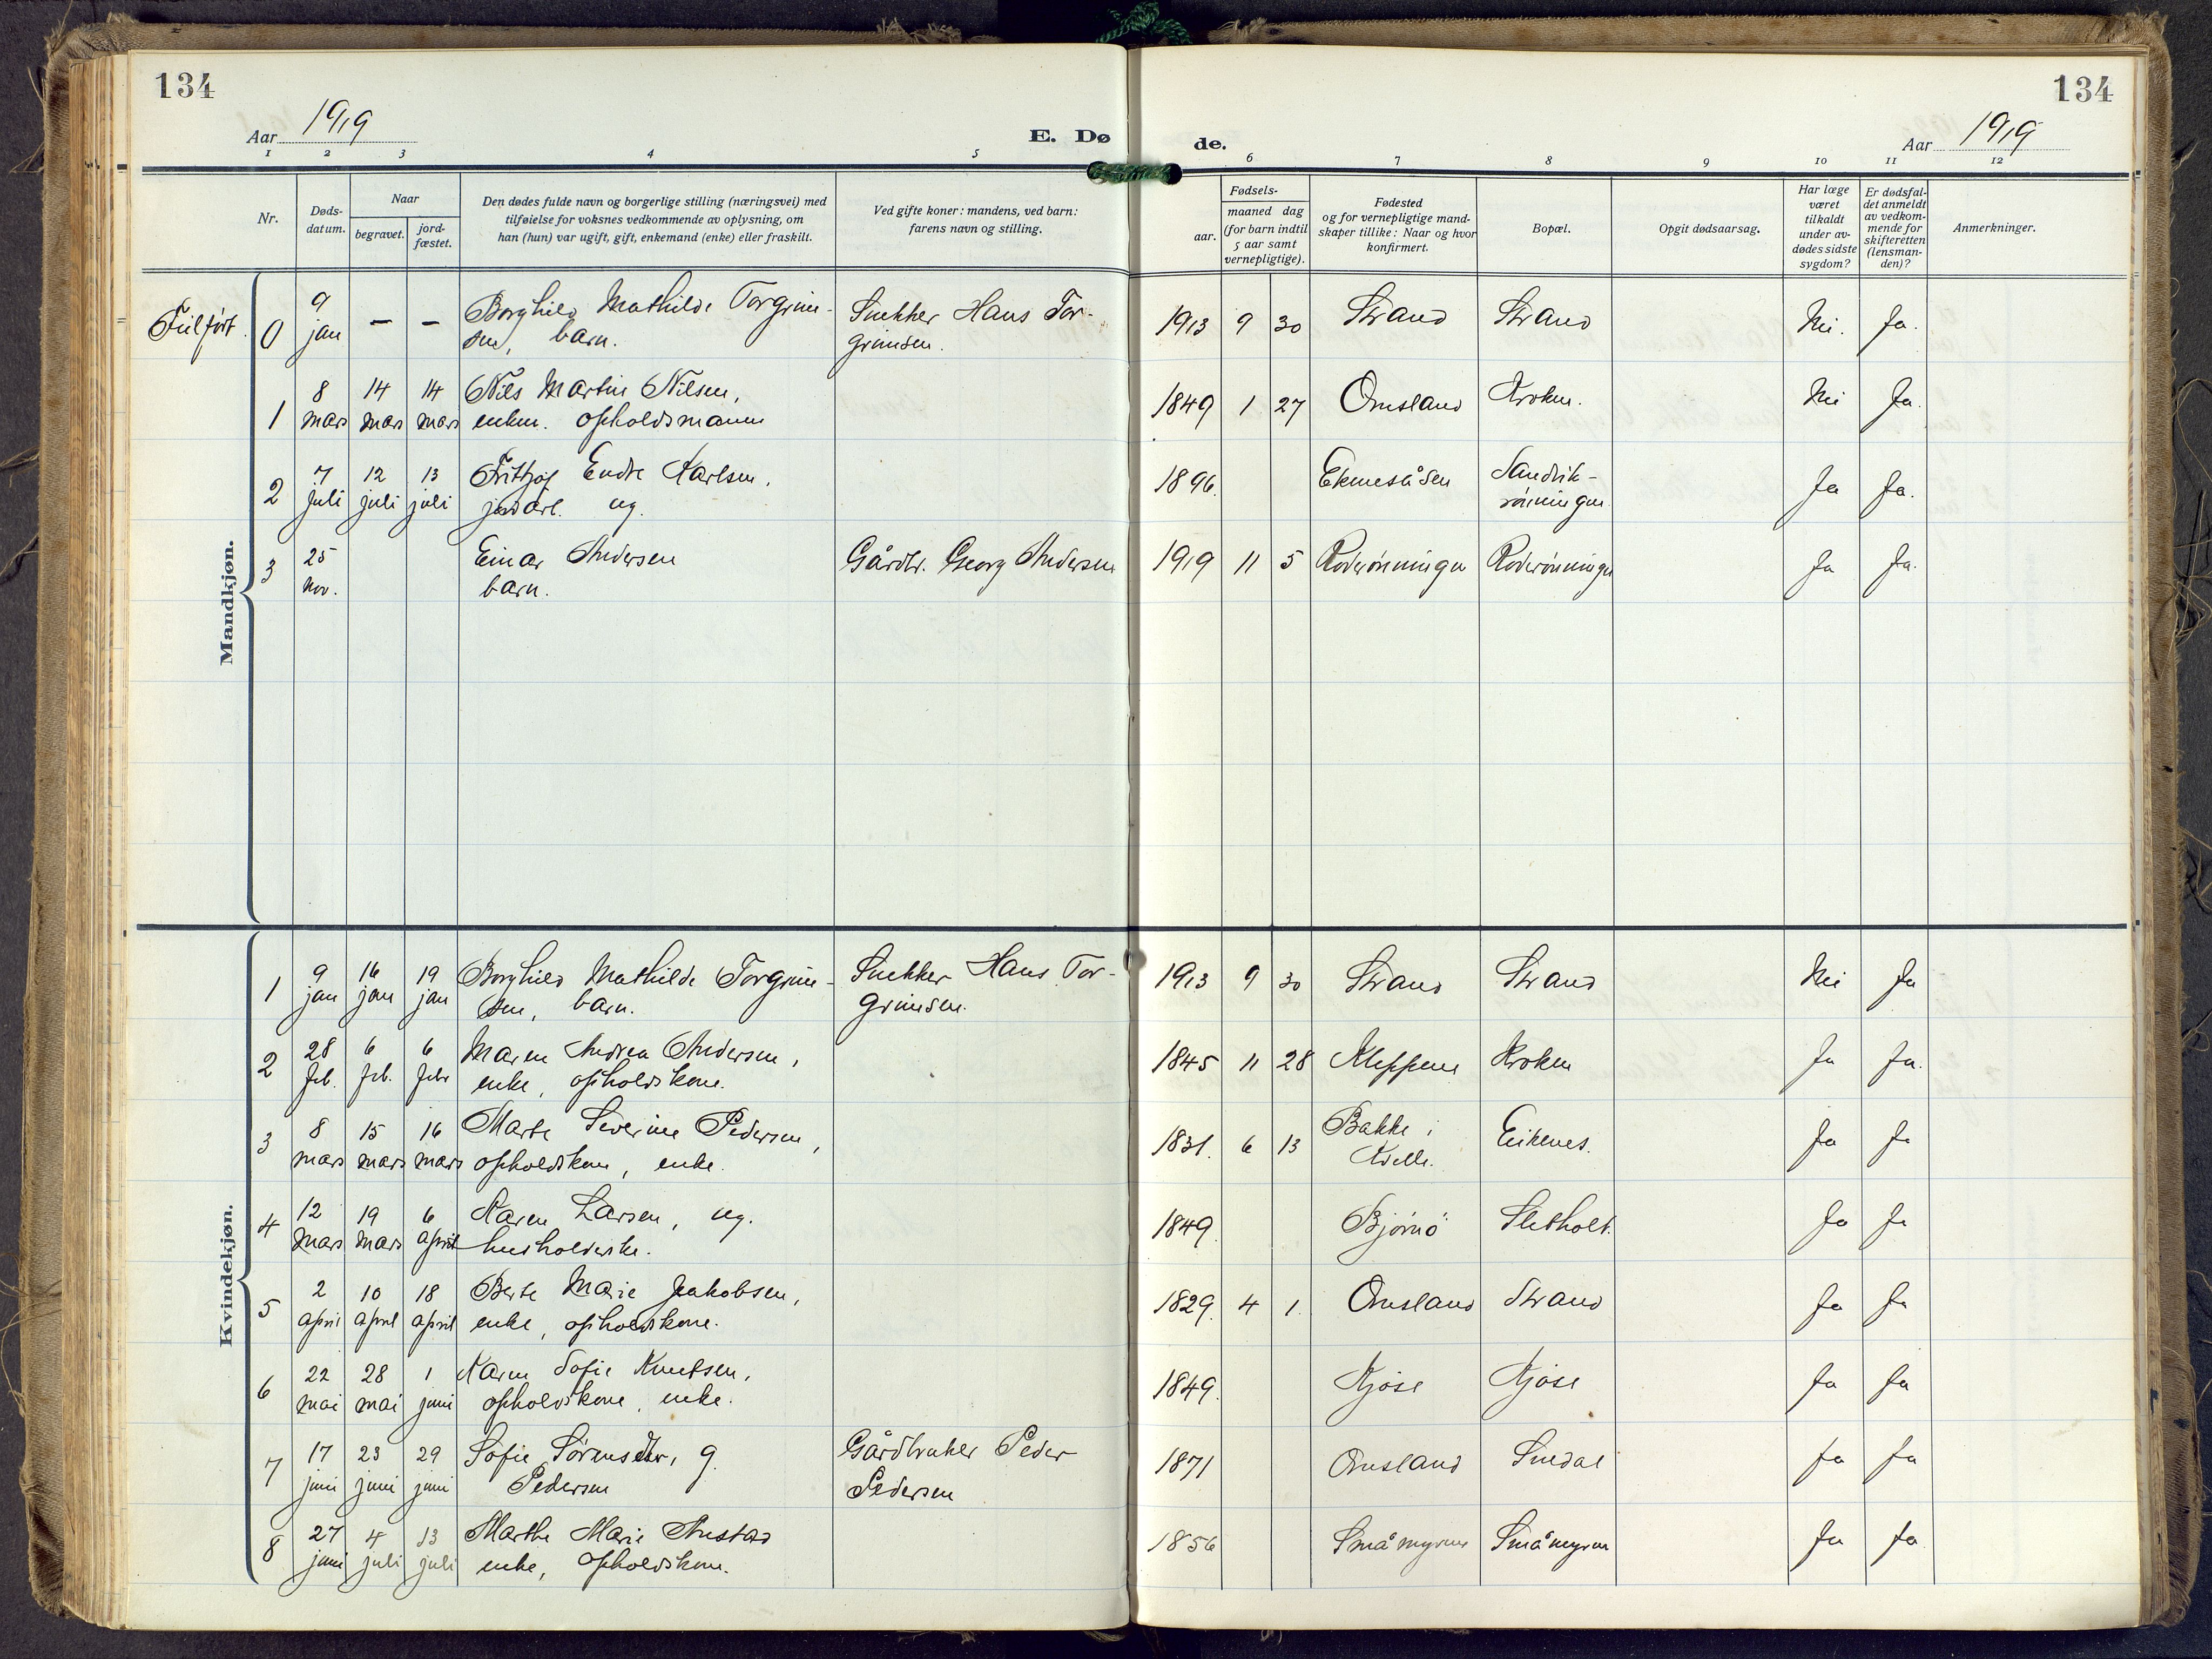 134
134
Aar 1919
E. Dø
de.
Aar 1919
1 2 3 4 5 6 7 8 9 10 11 12
Nr.
Døds-
datum.
Naar
begravet.
jord-
fæstet.
Den dødes fulde navn og borgerlige stilling (næringsvei) med
tilføielse for voksnes vedkommende av oplysning, om
han (hun) var ugift, gift, enkemand (enke) eller fraskilt.
Ved gifte koner: mandens, ved barn:
farens navn og stilling.
Fødsels-
aar.
maaned dag
(for barn indtil
5 aar samt
vernepligtige).
Fødested
og for vernepligtige mand-
skaper tillike: Naar og hvor
konfirmert.
Bopæl.
Opgit dødsaarsag.
Har læge
været
tilkaldt
under av-
dødes sidste
sygdom?
Er dødsfal-
det anmeldt
av vedkom-
mende for
skifteretten
(lensman-
den)?
Anmerkninger.
Mandkjøn.
Feilført. 0 9 jan — — Borghild Mathilde Torgrim- Snekker Hans Tor- 1913 9 30 Strand Strand Nei. Ja.
sen, barn. grimsen.
1 8 14 14 Nils Martin Nilsen, 1849 1 27 Omsland Kroken. Nei Ja.
mars mars mars enkem. opholdsmann
2 7 12 13 Frithjof Endre Karlsen, 1896. Ekenesåsen Sandvik- Ja Ja.
juli juli juli jordarb. ug. rönningen
3 25 Einar Andersen Gårdbr. Georg Andersen 1919 11 5 Roderönningen Roderönningen Ja Ja.
nov. barn.
Kvindekjøn.
1 9 16 19 Borghild Mathilde Torgrim- Snekker Hans Tor- 1913 9 30 Strand Strand Nei Ja
jan jan jan sen, barn. grimsen.
2 28 6 6 Maren Andrea Andersen, 1845 11 28 Kleppene Kroken Ja Ja.
feb. feb. febr enke, opholdskone.
3 8 15 16 Marte Severine Pedersen, 1831. 6 13 Bakke i Eikenes. Ja Ja
mars mars mars opholdskone, enke. Kvelle.
4 12 19 6 Karen Larsen, ug. 1849. Bjørnö Sletholt. Ja Ja
mars mars april husholderske.
5 2 10 18 Berte Marie Jakobsen, 1829. 4 1. Omsland Strand Ja Ja
april april april enke, opholdskone.
6 22 28 1 Karen Sofie Knutsen, 1849. Kjöse Kjöse Ja Ja
mai mai juni opholdskone, enke.
7 17 23 29 Sofie Sørensdtr, g. Gårdbruker Peder 1871 Omsland Ja Ja
juni juni juni Pedersen Pedersen
8 27 4 13 Marthe Marie 1856 Småmyrene Småmyren Ja Ja
juni juli juli enke, opholdskone.